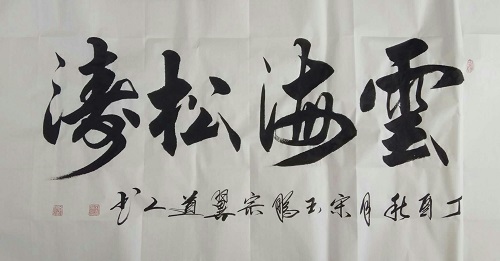 雲海松濤
丁酉秋月宋玉鵬宗翼道人书